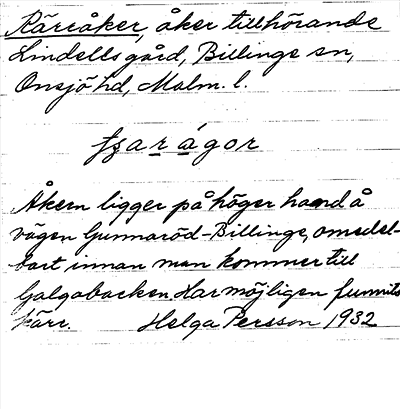 Kärråker, åker tillhörande
Lindells gård, Billinge sn,
Onsjö hd, Malm. l.
Åkern ligger på höger hand å
vägen Gunnaröd-Billinge, omedel-
bart innan man kommer till
Galgabacken. Har möjligen funnits
kärr. Helga Persson 1932